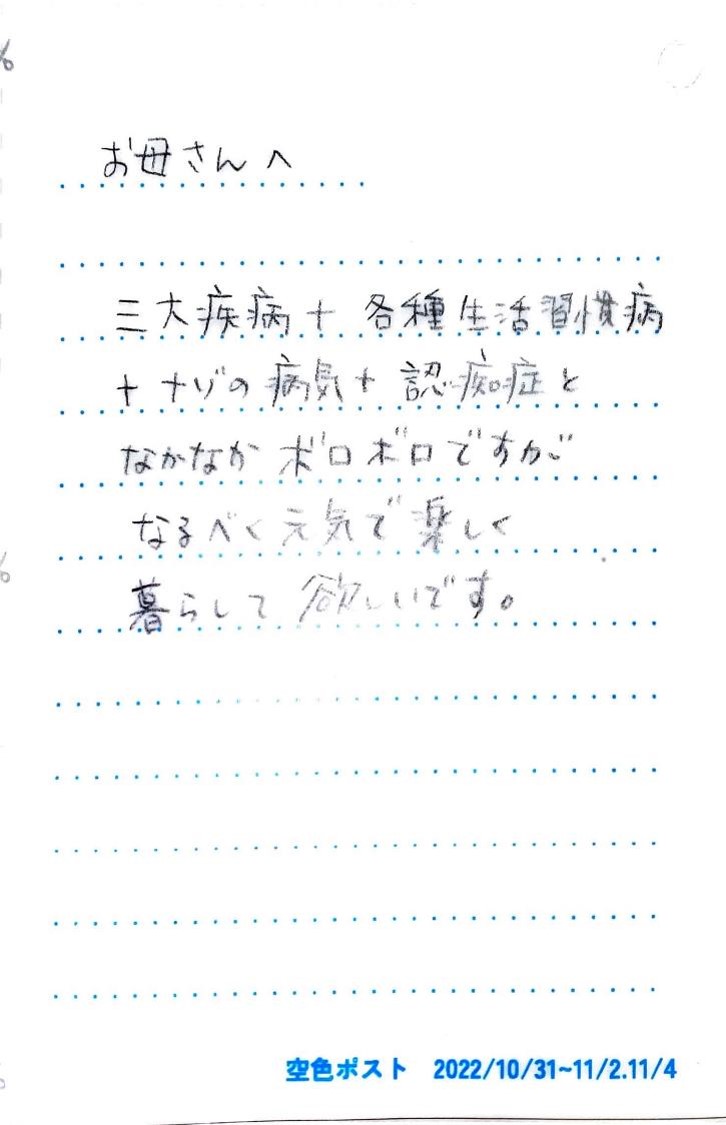 お母さんへ
三大疾病+各種生活習慣病
+ナゾの病気+認痴症と
なかなかボロボロですが
なるべく元気で楽しく
暮らして欲しいです。
空色ポスト 2022/10/31~11/2.11/4